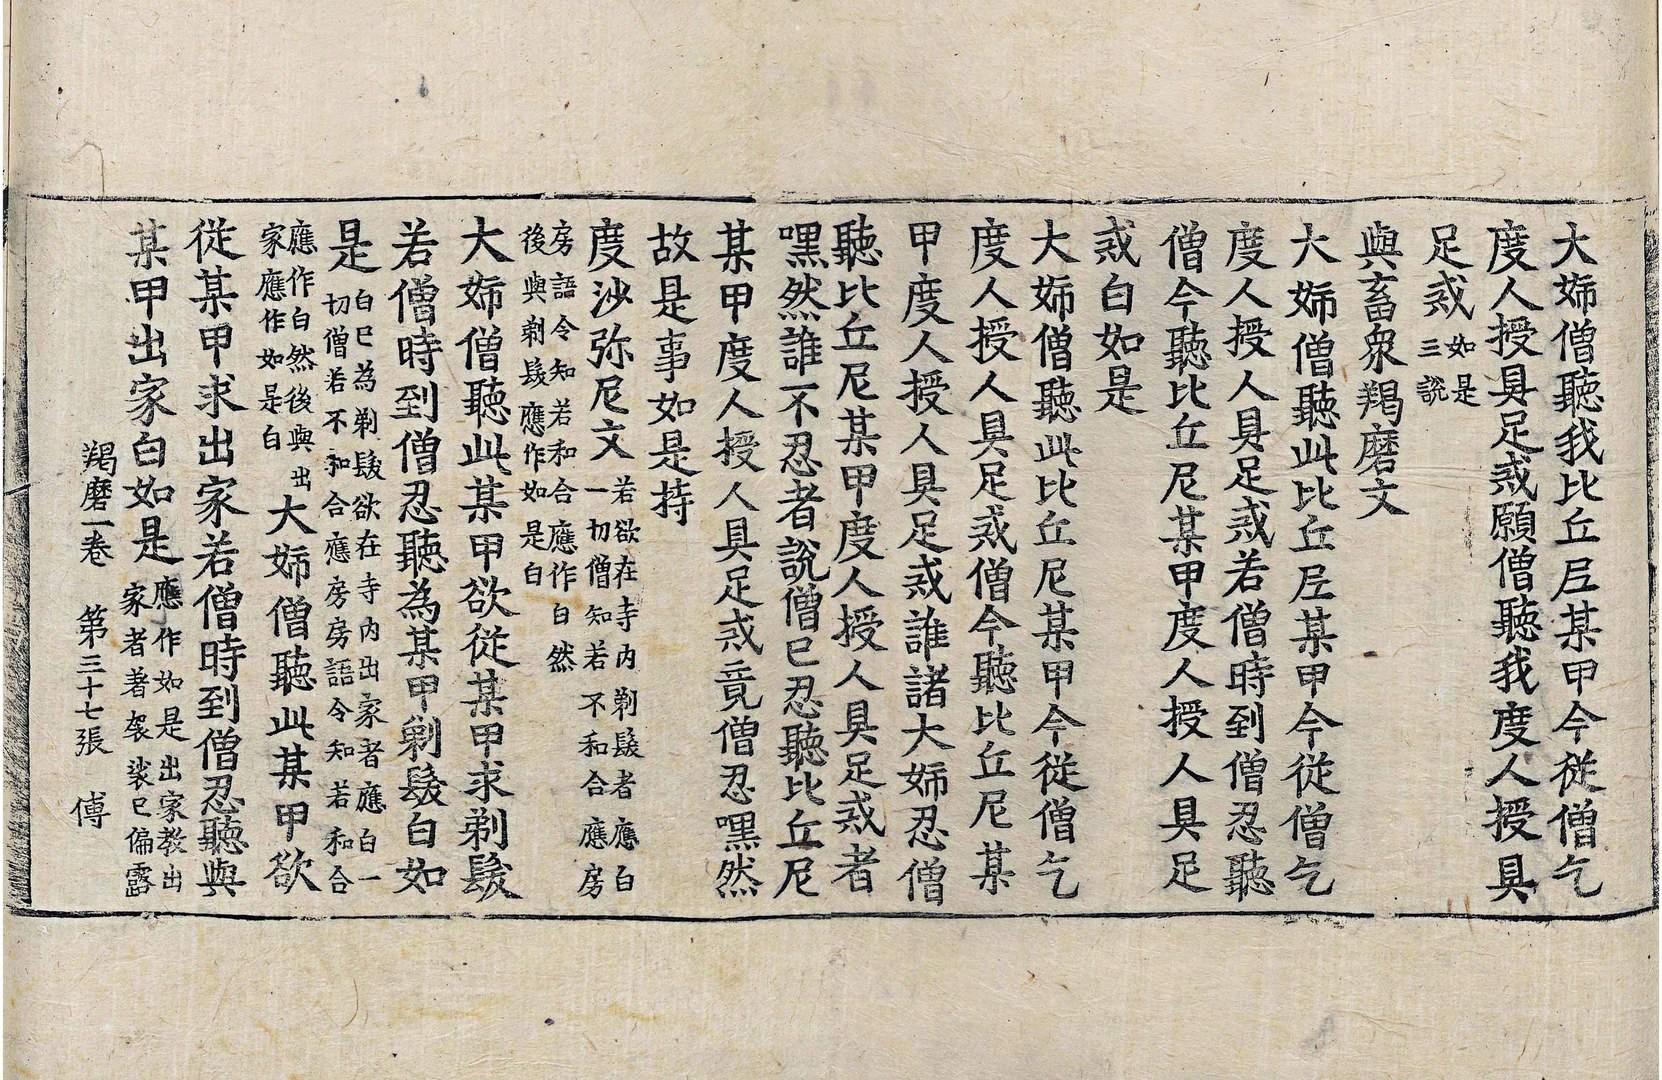 大姊僧聽我比丘尼某甲今從僧乞
度人授具足戒願僧聽我度人授具
足戒如是三說
與畜衆羯磨文
大姊僧聽此比丘尼某甲今從僧乞
度人授人具足戒若僧時到僧忍聽
僧今聽比丘尼某甲度人授人具足
戒白如是
大姊僧聽此比丘尼某甲今從僧乞
度人授人具足戒僧今聽比丘尼某
甲度人授人具足戒誰諸大姊忍僧
聽比丘尼某甲度人授人具足戒者
嘿然誰不忍者說僧已忍聽比丘尼
某甲度人授人具足戒竟僧忍嘿然
故是事如是持
度沙弥尼文若欲在寺内剃髮者應白
一切僧知若不和合應房
房語令知若和合應作白然
後與剃髮應作如是白
大姊僧聽此某甲欲從某甲求剃髮
若僧時到僧忍聽為某甲剃髮白如
是白已為剃髮欲在寺内出家者應白一
切僧若不和合應房房語令知若和合
應作白然後與出
家應作如是白大姊僧聽此某甲欲
從某甲求出家若僧時到僧忍聽與
某甲出家白如是應作如是出家教出
家者著袈裟已偏露
羯磨一卷 第三十七張 傅